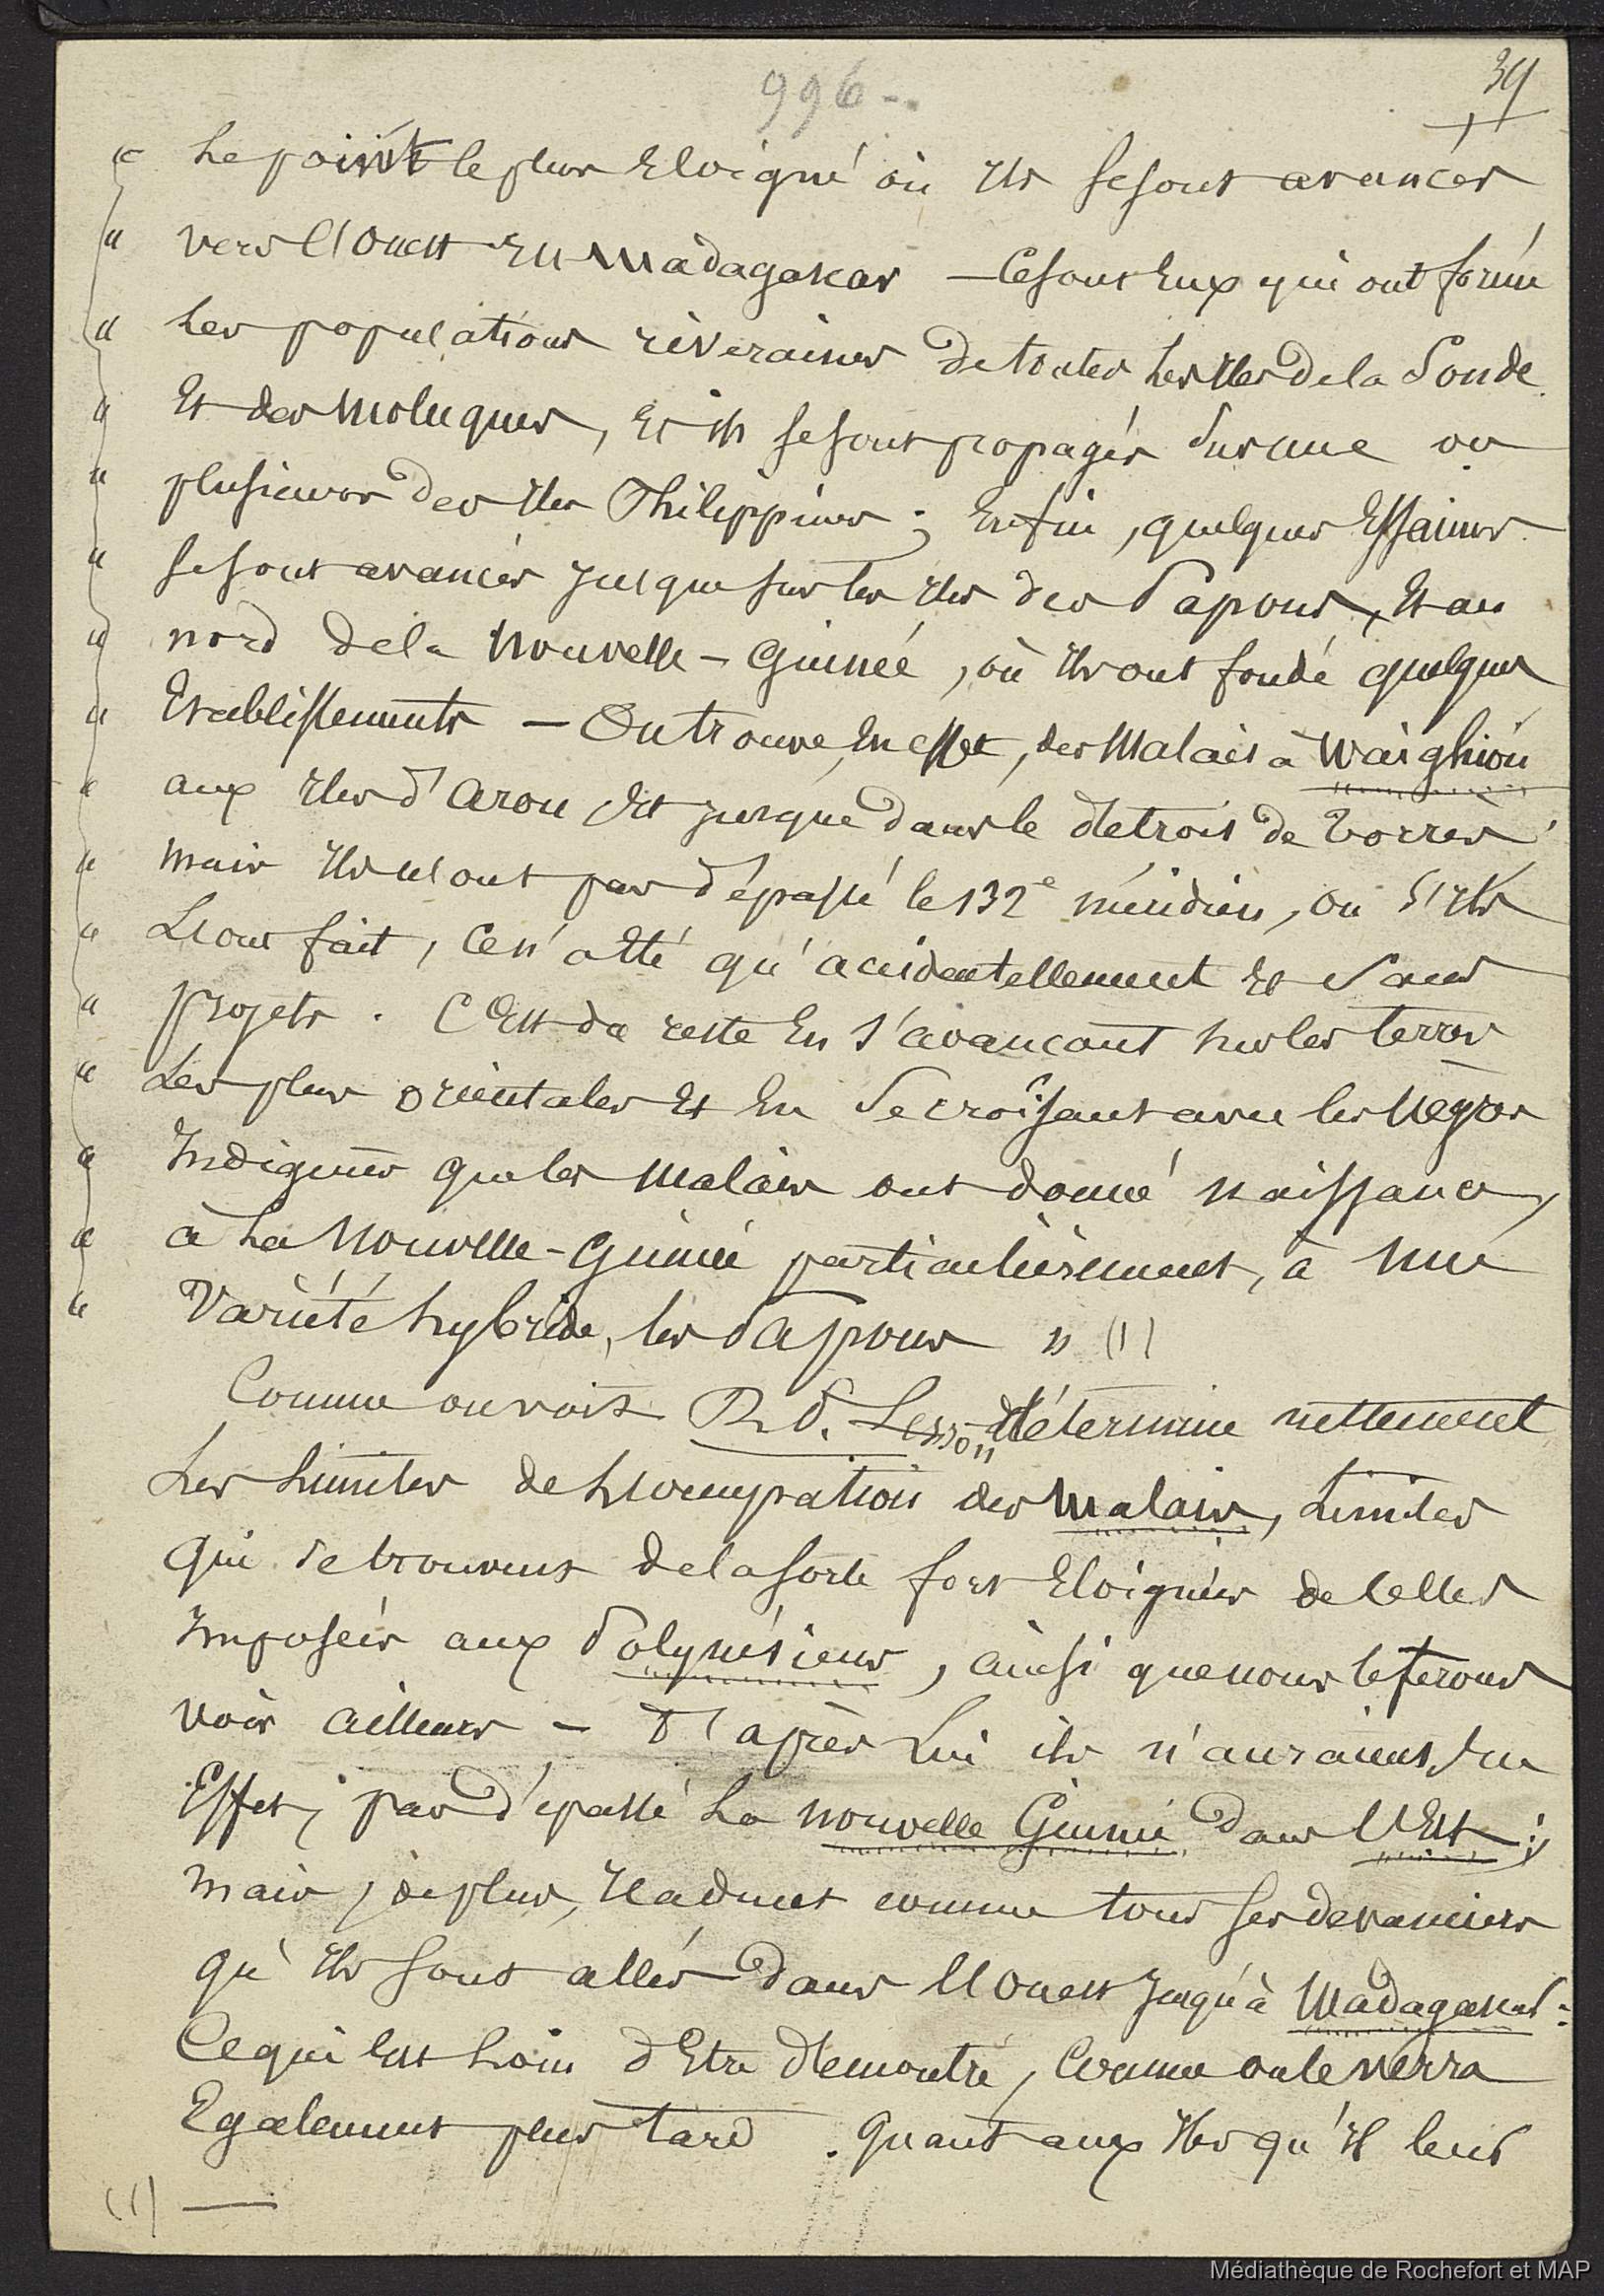 996 -
39
" Le point le plus Eloigné où Ils se sont avancés
" vers l'Ouest Est Madagascar — Ce sont Eux qui ont formé
" Les populations riveraines de toutes Les Iles de la Sonde
" Et des Moluques, Et ils se sont propagés Sur une ou
" plusieurs des Iles Philippines ; Enfin, quelques Essaims
" se sont avancés Jusque sur les Iles des Papous, Et au
" nord de la Nouvelle-Guinée, où Ils ont fondé quelques
" Etablissements — On trouve, En effet, des Malais à Waighiou
" aux Iles d'Arou Et jusque dans le détroit de Torrès
" Mais Ils n'ont pas dépassé le 132e méridien, ou s'Ils
" L'ont fait, ce n'a Eté qu'accidentellement Et Sans
" projets. C'Est du reste En s'avançant sur les terres
" Les plus orientales Et En Se croisant avec les Nègres
" Indigènes que les Malais ont donné naissance,
" à La Nouvelle-Guinée particulièrement, à une
" Variété hybride, les Papous " (1)
Comme on voit R. P. Lesson détermine nettement
Les Limites de L'occupation des Malais, Limites
qui se trouvent de la sorte fort Eloignées de Celles
Imposées aux Polynésiens, ainsi que nous le ferons
voir ailleurs — D'après Lui ils n'auraient, En
Effet, pas dépassé La nouvelle Guinée dans l'Est ;
mais, de plus, Il admet comme tous ses devanciers
qu'Ils sont allés dans l'Ouest Jusqu'à Madagascar :
Ce qui Est Loin d'Etre démontré, Comme on le verra
Egalement plus tard. Quant aux Iles qu'Il leur
(1) —
Médiathèque de Rochefort et MAP